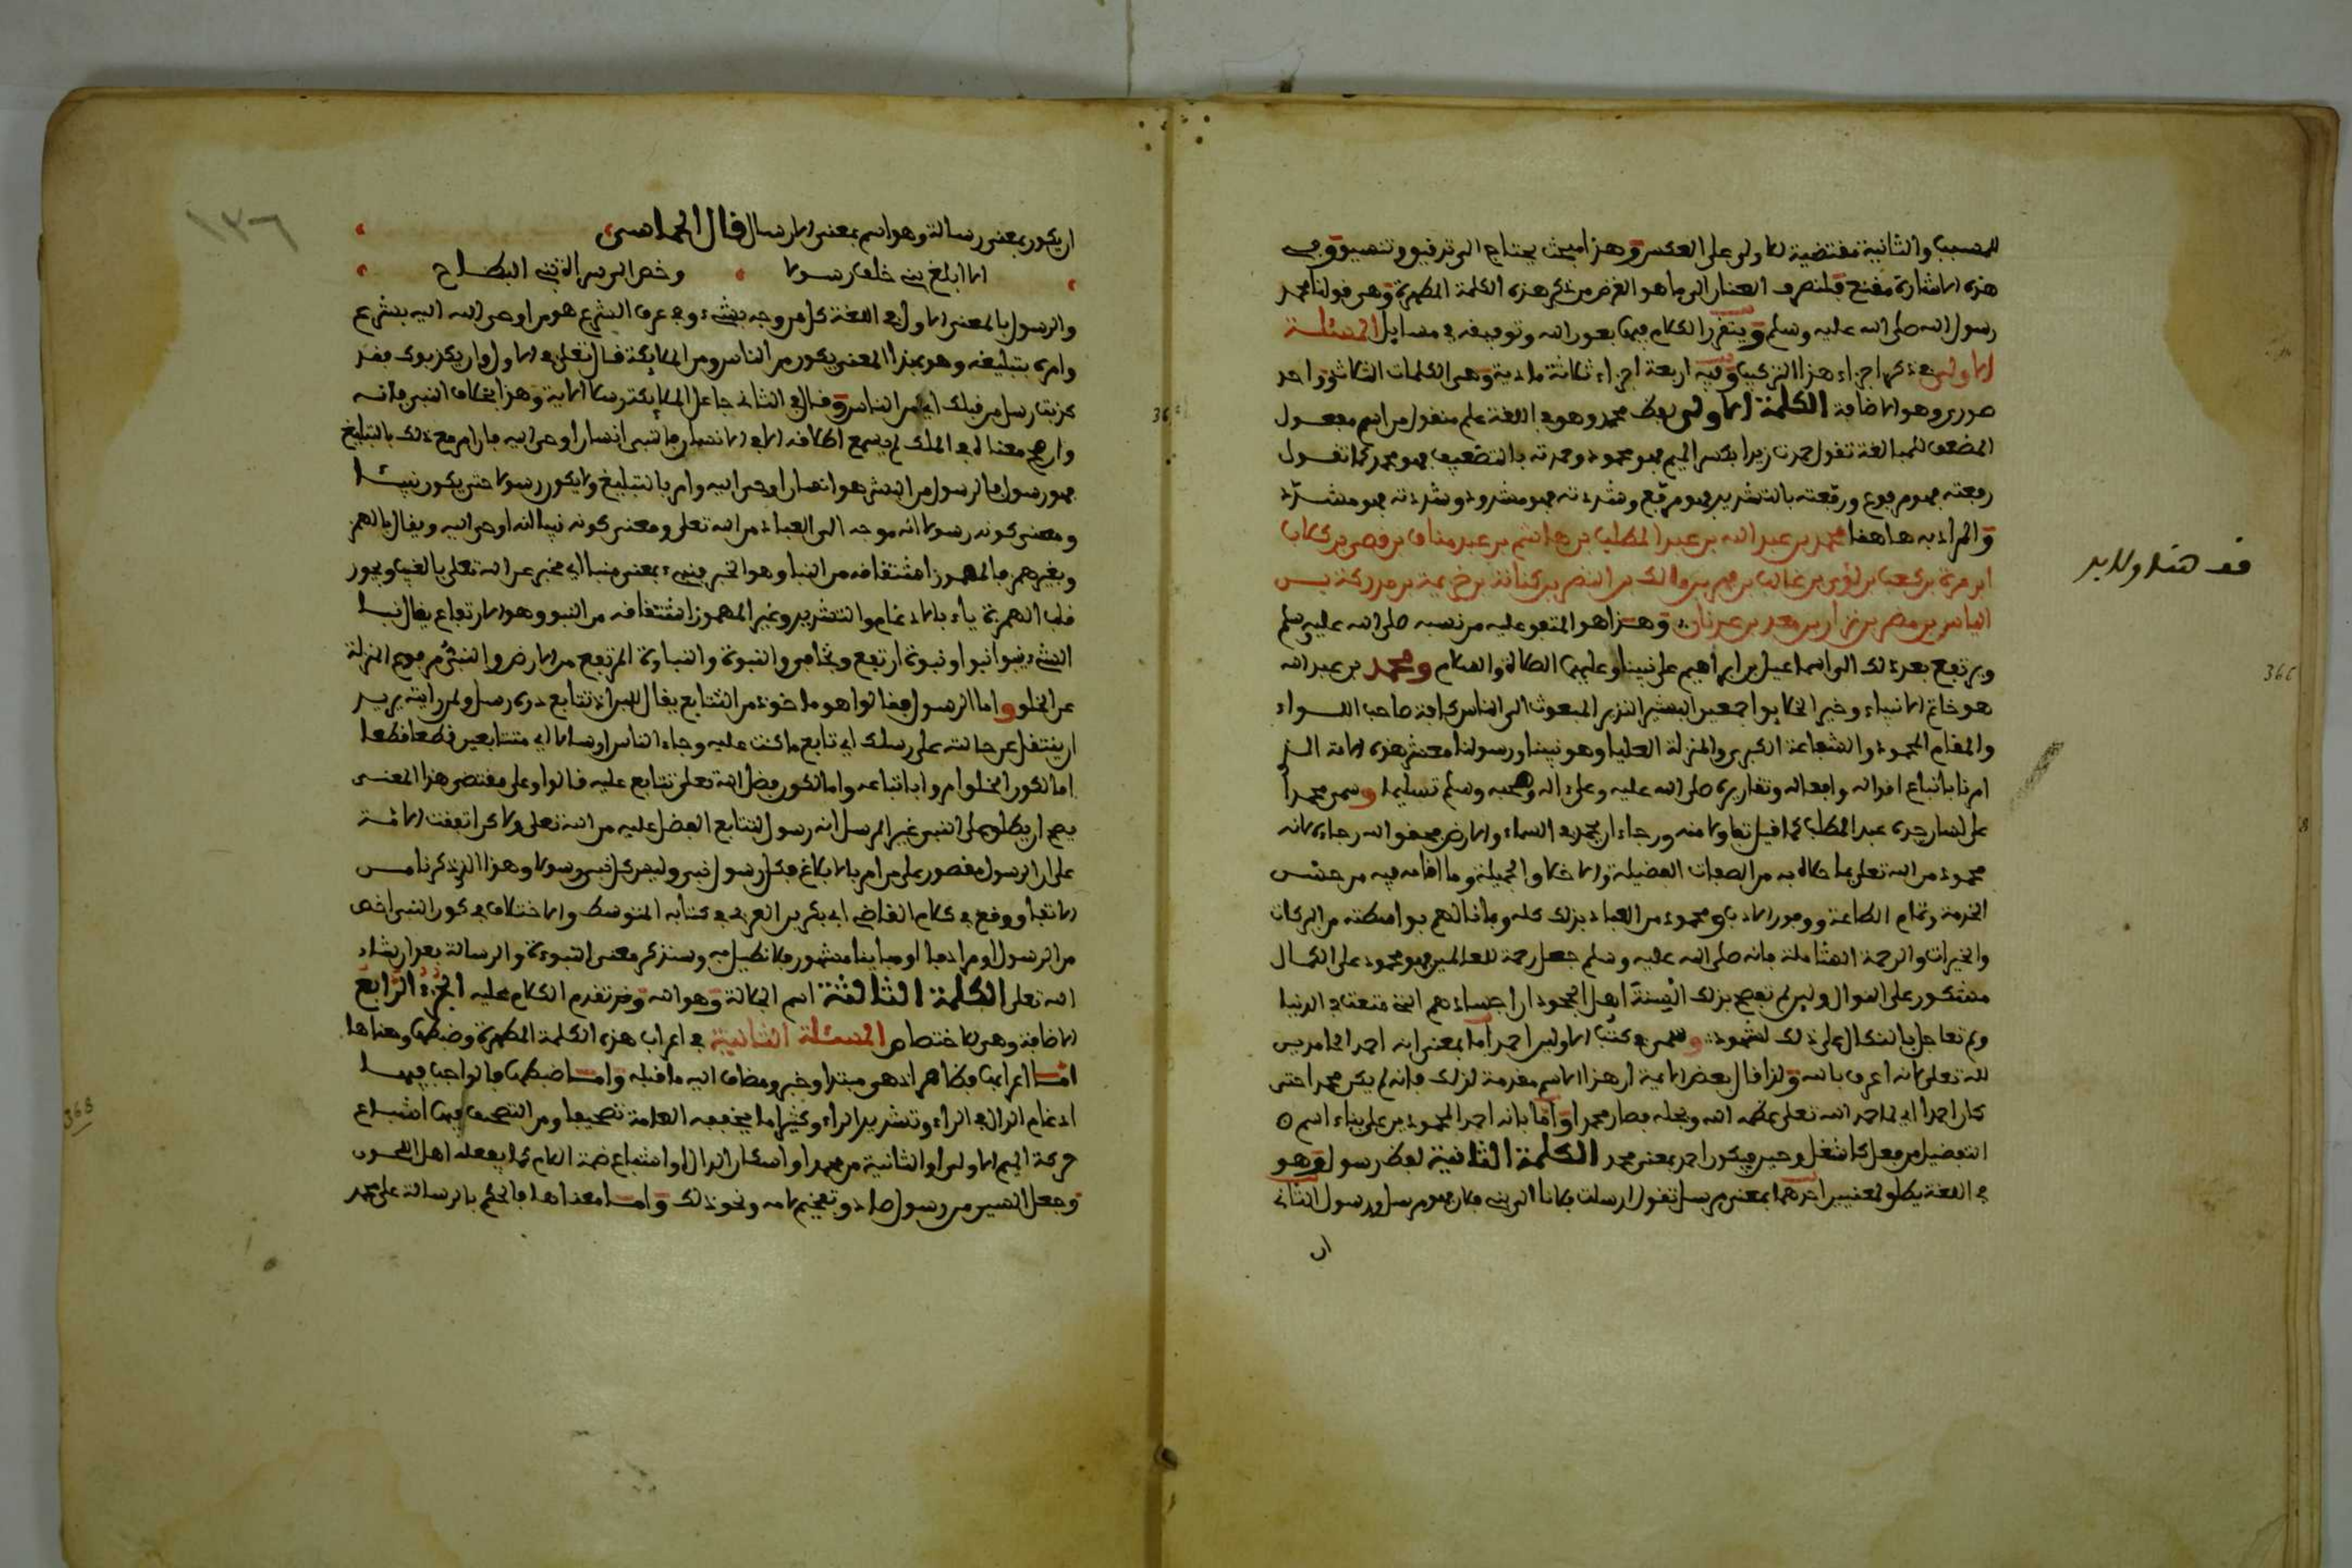 للمسبب والثانية مقتضية للاولى على العكس وهذا مبحث يحتاج الى تدقيق وتنميق وفي
هذه الاشارة مقنع فلنصرف العنان الى ما هو الغرض من ذكر هذه الكلمة المطهرة وهي قولنا محمد
رسول الله صلى الله عليه وسلم ويتقرر الكلام فيها بعون الله وتوفيقه في مسايل المسئلة
الاولى في ذكر اجزاء هذا التركيب وفيه اربعة اجزاء ثلاثة مادية وهي الكلمات الثلاث وواحد
صوري وهو الاضافة الكلمة الاولى لفظ محمد وهو في اللغة علم منقول من اسم مفعول
المضعف للمبالغة تقول حمدت زيدا بكسر الميم فهو محمود وحمدته بالتضعيف فهو محمد كما تقول
رفعته فهو مرفوع ورفعته بالتشديد فهو مرفع وشردته فهو مشرود وشردته فهو مشرد
والمراد به هاهنا محمد بن عبد الله بن عبد المطلب بن هاشم بن عبد مناف بن قصي بن كلاب
ابن مرة بن كعب بن لؤي بن غالب بن فهر بن مالك بن النضر بن كنانة بن خزيمة بن مدركة بن
الياس بن مضر بن نزار بن معد بن عدنان وهذا هو المتفق عليه من نسبه صلى الله عليه وسلم
ويرتفع بعد ذلك الى اسماعيل بن ابراهيم على نبينا وعليهما الصلاة والسلام ومحمد بن عبد الله
هو خاتم الانبياء وخير الخلايق اجمعين البشير النذير المبعوث الى الناس كافة صاحب اللواء
والمقام المحمود والشفاعة الكبرى والمنزلة العليا وهو نبينا ورسولنا معشر هذه الامة الذي
امرنا باتباع اقواله وافعاله وتقاريره صلى الله عليه وعلى اله وصحبه وسلم تسليما وسمي محمدا
على لسان جده عبد المطلب كما قيل تفاولا منه ورجاء ان يحمد في السماء والارض فحقق الله رجاءه لانه
محمود من الله تعلى بما حلاه به من الصفات الفضيلة والاخلاق الجميلة وما اقامه فيه من حسن
الخدمة وتمام الطاعة ووفور الادب ومحمود من العباد بذلك كله وبما نالهم بواسطته من البركات
والخيرات والرحمة الشاملة فانه صلى الله عليه وسلم جعل رحمة للعالمين فهو محمود على الكمال
مشكور على النوال ولين لم تفصح بذلك السنة اهل الجحود ان اجسادهم التي متعت في الدنيا
ولم تعاجل بالنكال على ذلك لشهود وسمي في كتب الاولين احمد اما بمعنى انه احمد الحامدين
لله تعلى لانه اعرف بالله ولذا قال بعض الايمة ان هذا الاسم مقدمة لذلك فانه لم يكن محمدا حتى
كان احمد اي لما حمد الله تعلى عظمه الله وبجله فصار محمدا واما بانه احمد المحمودين على بناء اسم
التفضيل من فعل كاشغل وحير فيكون احمد بمعنى محمد الكلمة الثانية لفظ رسول وهو
في اللغة يطلق لمعنيين احدهما بمعنى مرسل تقول ارسلت فلانا الى بني فلان فهو مرسل ورسول الثاني
ان
ان يكون بمعنى رسالة وهو اسم بمعنى الارسال قال الحماسي
الا ابلغ بني خلف رسولا وخص الى سراة بني البطاح
والرسول بالمعنى الاول في اللغة كل من وجه بشيء وفي عرف الشرع هو من اوحى الله اليه بشرع
وامره بتبليغه وهو بهذا المعنى يكون من الناس ومن الملايكة قال تعلى في الاول وان يكذبوك فقد
كذبت رسل من قبلك اي من الناس وقال في الثاني جاعل الملايكة رسلا الاية وهذا بخلاف النبي فانه
وان صح معناه في الملك لم يسمع اطلاقه الا في الانسان فالنبي انسان اوحي اليه فان امر مع ذلك بالتبليغ
فهو رسول فالرسول من البشر هو انسان اوحي اليه وامر بالتبليغ ولا يكون رسولا حتى يكون نبيئا
ومعنى كونه رسولا انه موجه الى العباد من الله تعلى ومعنى كونه نبيا انه اوحي اليه ويقال بالهمز
وبغير همز فالمهموز اشتقاقه من النبا وهو الخبر فنبيء بمعنى منبا اي مخبر عن الله تعلى بالغيب ويجوز
قلب الهمزة ياء بالادغام والتشديد وغير المهموز اشتقاقه من النبو وهو الارتفاع يقال نبا
الشيء ينبو نبوا ونبوة ارتفع وتجافى والنبوة والنباوة المرتفع من الارض والنبي مرفوع المنزلة
عن الخلق واما الرسول فقالوا هو ماخوذ من التتابع يقال للبن اذا تتابع دره رسل ولمن رايته يريد
ان ينتقل عن حالته على رسلك اي تابع ما كنت عليه وجاء الناس ارسالا اي متتابعين قطعا قطعا
اما لكون الخلق امروا باتباعه واما لكون فضل الله تعلى تتابع عليه قالوا وعلى مقتضى هذا المعنى
يصح ان يطلق على النبي غير المرسل انه رسول لتتابع الفضل عليه من الله تعلى ولاكن اتفقت الامة
على ان الرسول مقصور على من امر بالابلاغ فكل رسول نبي وليس كل نبي رسولا وهذا الذي ذكرنا من
الاتفاق وقع في كلام القاضي ابي بكر بن العربي في كتابه المتوسط والاختلاف في كون النبي اخص
من الرسول او مرادفا او مباينا مشهور فلا نطيل به وسنذكر معنى النبوءة والرسالة بعد ان شاء
الله تعلى الكلمة الثالثة اسم الجلالة وهو الله وقد تقدم الكلام عليه الجزء الرابع
الاضافة وهي للاختصاص المسئلة الثانية في اعراب هذه الكلمة المطهرة وضبطها ومعناها
اما اعرابها فظاهر اذ هو مبتدا وخبر ومضاف اليه ما قبله واما ضبطها فالواجب فيها
ادغام الدال في الراء وتشديد الراء وكثيرا ما يخففه العامة تصحيفا ومن التصحيف فيها اشباع
حركة الميم الاولى او الثانية من محمد او اسكان الدال او اشباع ضمة اللام كما يفعله اهل اللحون
وجعل السين من رسول صادا وتفخيم لامه ونحو ذلك واما معناها فالحكم بالرسالة على محمد
١٣٦
366